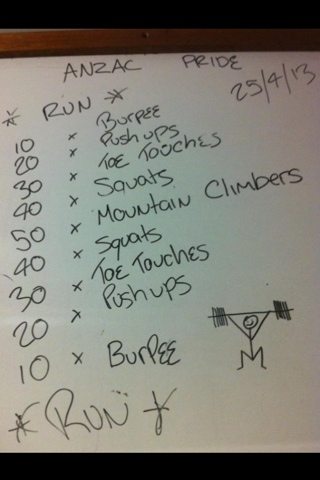 ANZAC PRIDE
25/4/13
* RUN *
10 x BURPEE
20 x Pushups
30 x TOE TOUCHES
40 x Squats
50 x MOUNTAIN CLIMBERS
40 x Squats
30 x TOE TOUCHES
20 x Pushups
10 x BURPEE
* RUN *